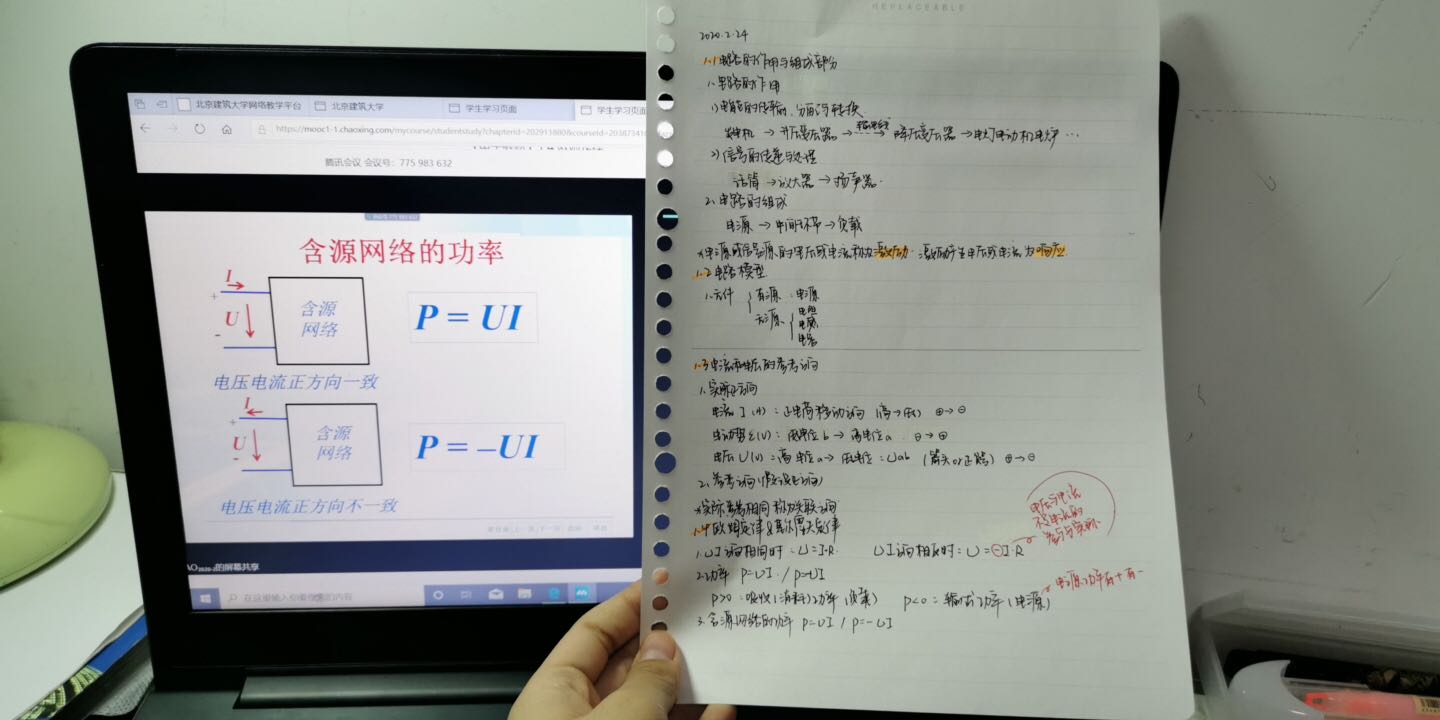 北京建筑大学网络教学平台
北京建筑大学
学生学习页面
学生学习页
https://mooc1-1.chaoxing.com/mycourse/studentstudy?chapterId=202911880&courseId=20387341
腾讯会议 会议号：775 983 632
含源网络的功率
I
+
U
-
含源
网络
P = UI
电压电流正方向一致
I
+
U
-
含源
网络
P = –UI
电压电流正方向不一致
AO2020-2的屏幕共享
在这里输入你要搜索的内容
REPLACEABLE
2020.2.24
1.1 电路的作用与组成部分
1. 电路的作用
1) 电能的传输、分配与转换
发电机 → 升压变压器 → 输电线 → 降压变压器 → 电灯电动机电炉 …
2) 信号的传递与处理
话筒 → 放大器 → 扬声器.
2. 电路的组成
电源 → 中间环节 → 负载
*电源或信号源的电压或电流称为激励. 激励所产生电压或电流为响应
1.2 电路模型
1. 元件
有源：电源
无源
电阻
电感
电容
1.3 电流和电压的参考方向
1. 实际方向
电流 I (A)：正电荷移动方向 (高→低) ⊕→⊖
电动势 E(V)：低电位 b → 高电位 a. ⊖→⊕
电压 U(V)：高电位 a → 低电位：Uab (箭头or正负) ⊕→⊖
2. 参考方向(假设正方向)
*实际参考相同 称为关联方向
1.4 欧姆定律&基尔霍夫定律
1. U I 方向相同时：U=I·R. U I 方向相反时：U=⊖I·R
电压与电流
参考与实际
2. 功率 P=UI / P=-UI
P>0：吸收(消耗)功率 (负载) P<0：输出功率 (电源)
电源功率有+有-
3. 含源网络的功率 P=UI / P=-UI